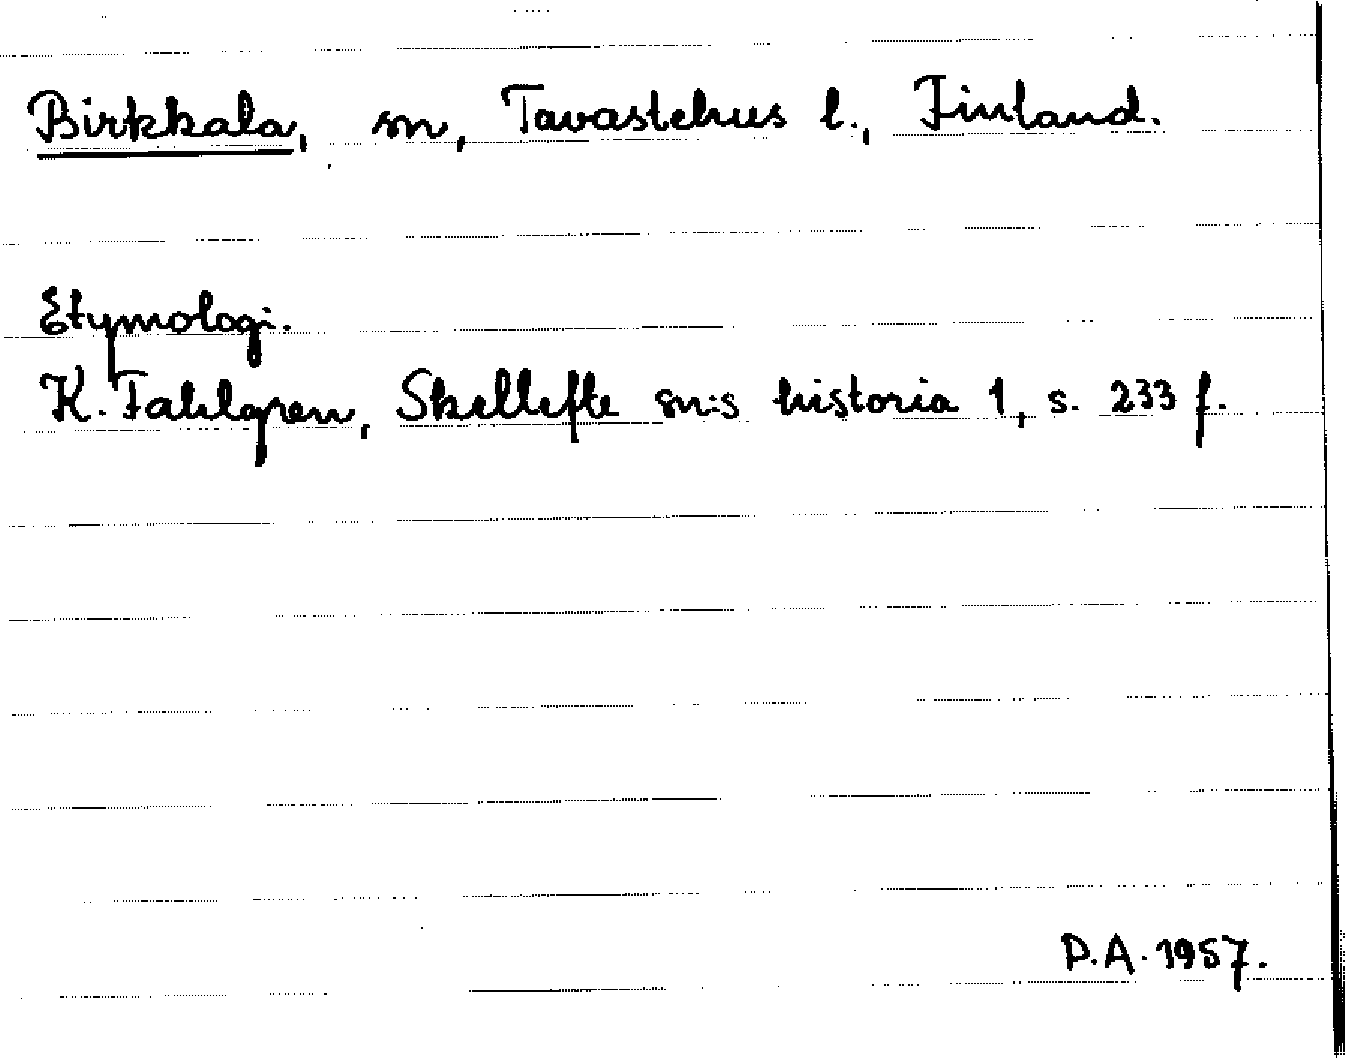 Birkkala, sn, Tavastehus l., Finland.
Etymologi.
K. Fahlgren, Skellefte sn:s historia 1, s. 233 f.
P.A. 1957.